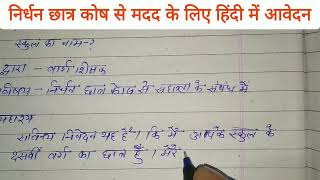 निर्धन छात्र कोष से मदद के लिए हिंदी में आवेदन
स्कूल का नाम-?
द्वारा - वर्ग शिक्षक
विषय - निर्धन छात्र कोष से सहायता के संबंध में
महाशय
सविनय निवेदन यह है। कि मैं आपके स्कूल के
दसवीं वर्ग का छात्र हूँ। मेरे